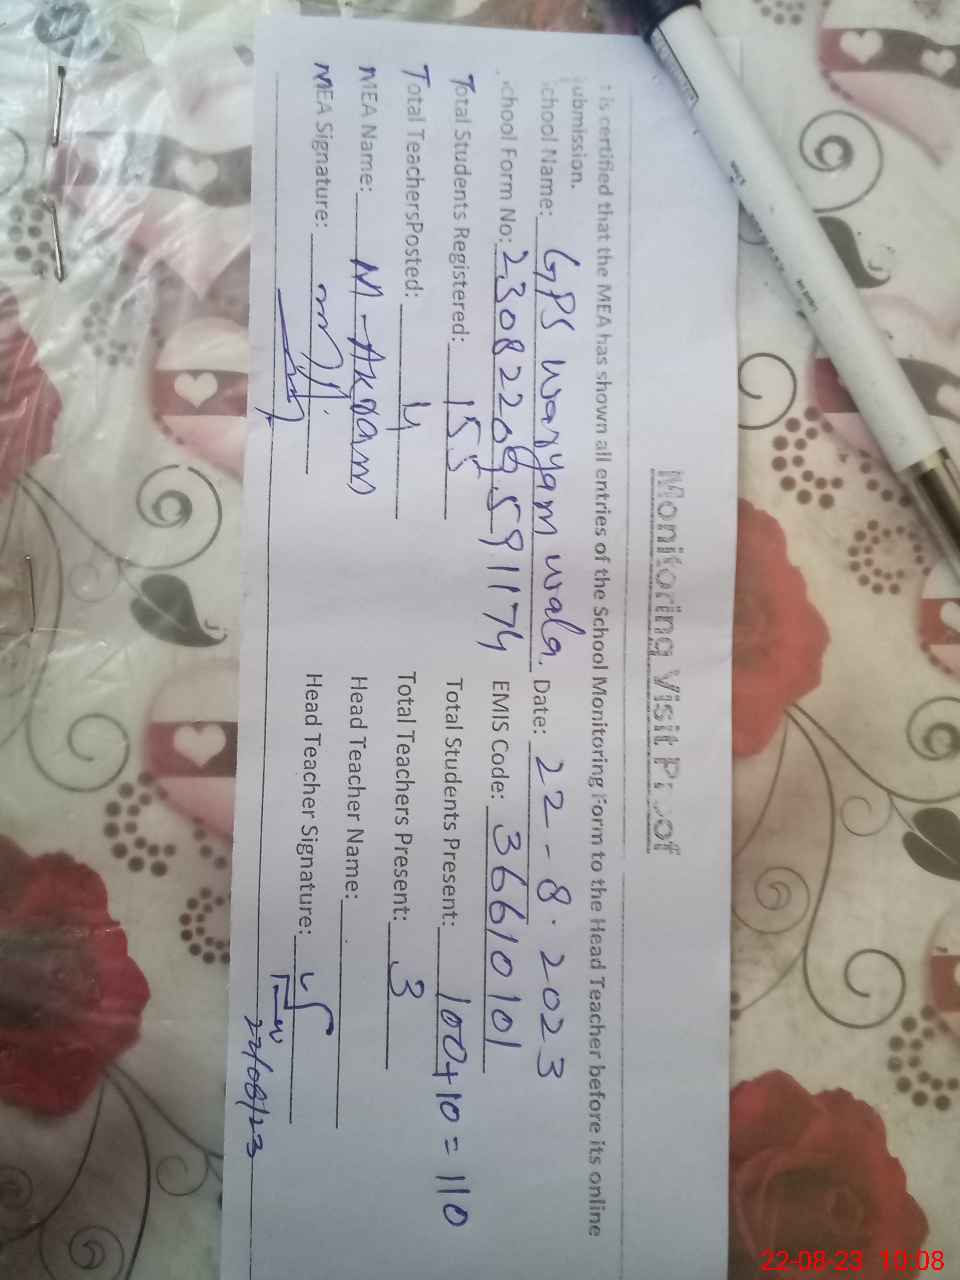 Monitoring Visit Proof
t is certified that the MEA has shown all entries of the School Monitoring Form to the Head Teacher before its online
ubmission.
chool Name: GPS waryam wala. Date: 22-8.2023
chool Form No: 23082209591174 EMIS Code: 36610101
Total Students Registered: 155 Total Students Present: 100+10=110
Total TeachersPosted: 4 Total Teachers Present: 3
MEA Name: M-Akram Head Teacher Name:
MEA Signature: Head Teacher Signature:
22/08/23
22-08-23 10:08